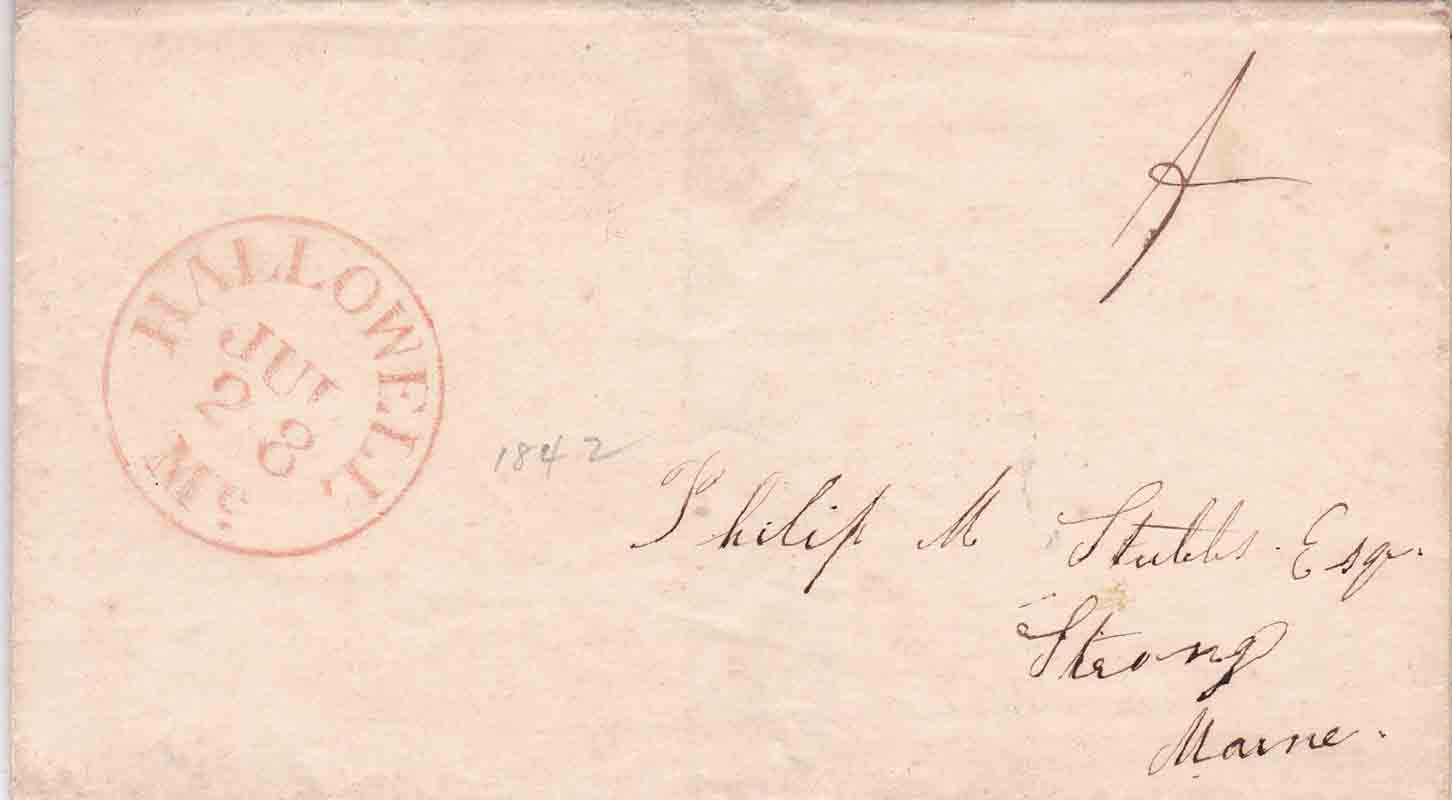 HALLOWELL
JUL
28
Me
1842
Philip M Stubbs. Esqr.
Strong
Maine.